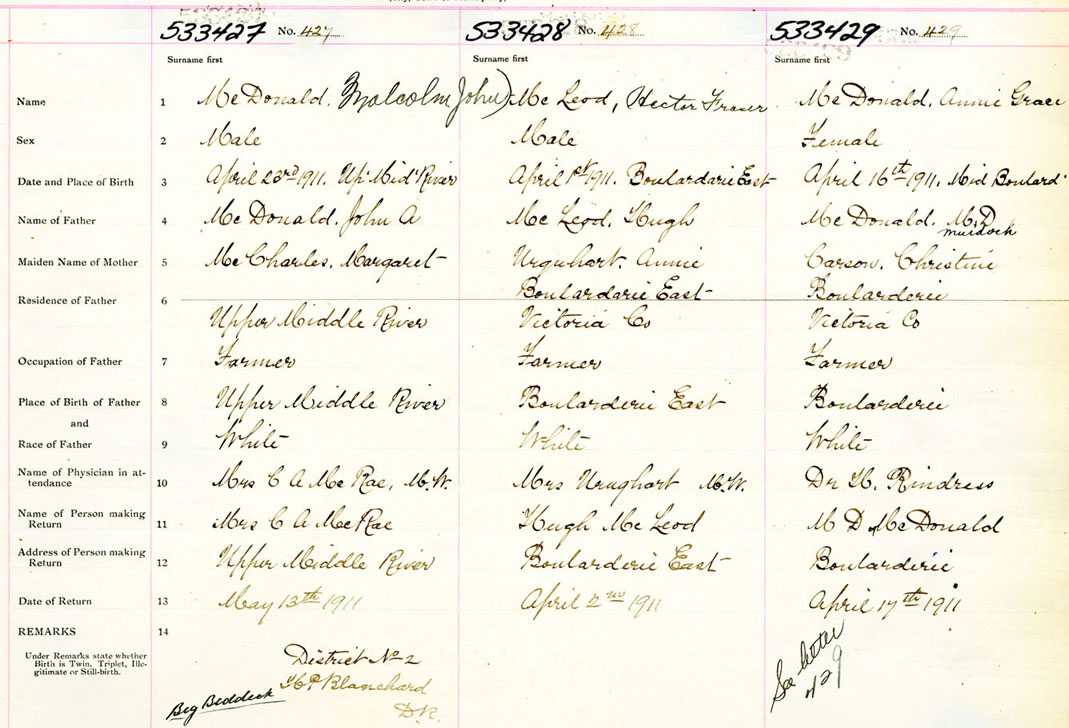 533427 No. 427 533428 No. 428 533429 No. 429
Surname first Surname first Surname first
Name 1 McDonald, Malcolm John) McLeod, Hector Fraser McDonald, Annie Grace
Sex 2 Male Male Female
Date and Place of Birth 3 April 23rd 1911. Up' Mid' River April 1st 1911. Boulardarie East April 16th 1911. Mid Boulard'
Name of Father 4 McDonald, John A McLeod, Hugh McDonald, M.D
Murdoch
Maiden Name of Mother 5 McCharles, Margaret Urquhart, Annie Carson, Christine
Boulardarie East Boularderie
Residence of Father 6
Upper Middle River Victoria Co Victoria Co
Occupation of Father 7 Farmer Farmer Farmer
Place of Birth of Father 8 Upper Middle River Boularderie East Boularderie
and
Race of Father 9 White White White
Name of Physician in at-
tendance 10 Mrs C A McRae, M.W. Mrs Urughart M.W. Dr H. Rindress
Name of Person making
Return 11 Mrs C A McRae Hugh McLeod M D McDonald
Address of Person making
Return 12 Upper Middle River Boularderie East Boularderie
Date of Return 13 May 13th 1911 April 2nd 1911 April 17th 1911
REMARKS 14
Under Remarks state whether
Birth is Twin, Triplet, Ille-
gitimate or Still-birth.
District No 2
Blanchard
D.R.
Big Beddeck
See letter
429